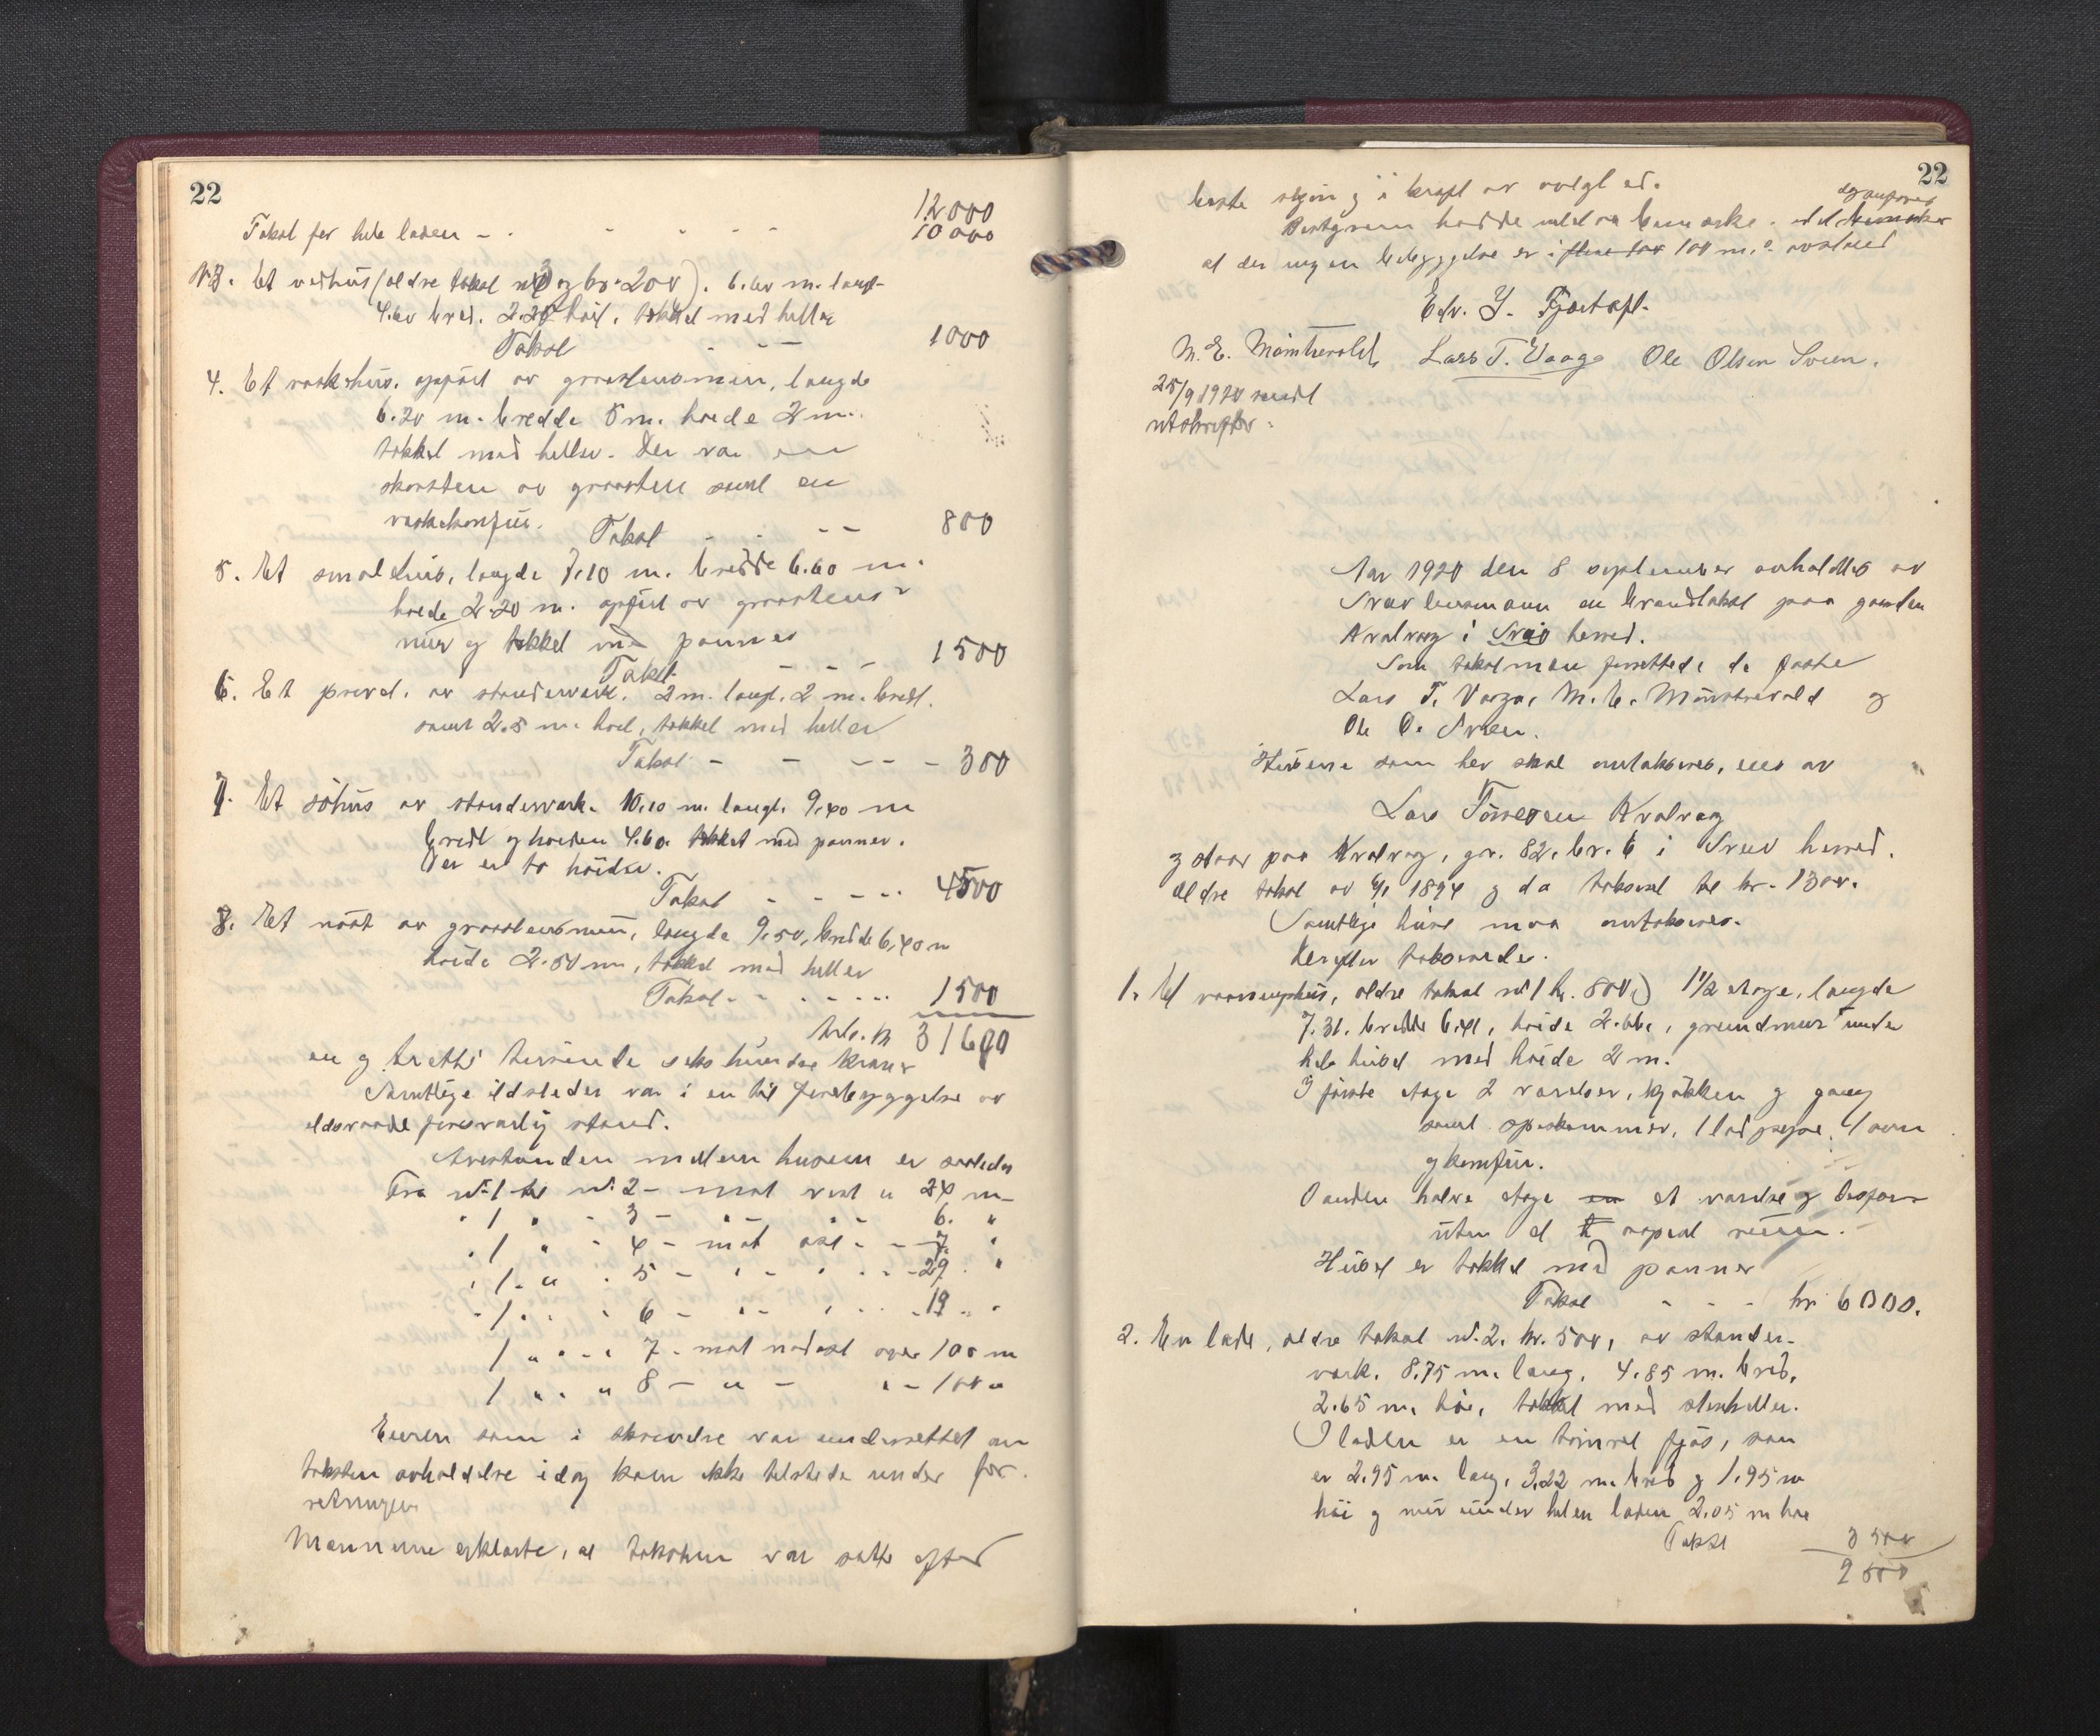 22
12000
Takst for hele laden - - - - - - 10000
Nr 3. Et vedhus (ældre takst nr 3 og kr. 200). 6.60 m. langt
4.60 bred. 2.20 høit, tækket med heller
Takst - - - 1000
4. Et vaskehus, opført av graastensmur, længde
6.20 m. bredde 5 m. høide 2 m.
tækket med heller. Der var en
skorsten av graasten samt en
vaskekomfur.
Takst - - - 800
5. Et smalehus, længde 7.10 m. bredde 6.60 m.
høide 2.20 m. opført av graastens-
mur og tækket med panner
Takst - - - 1500
6. Et privet. av stenderverk. 2 m. langt. 2 m. bredt.
samt 2.5 m. høit, tækket med heller
Takst - - - - - 300
7. Et søhus av stenderverk. 10.10 m. langt. 9.40 m
bredt og høiden 4.60. tækket med panner.
Der er to høider.
Takst - - - - 4500
8. Et nøst av graastensmur, længde 9.50, bredde 6,40 m
høide 2.50 m, tækket med heller
Takst - - - - 1500
Tils. kr 31600
en og tretti tusinde seks hundre kroner
Samtlige ildsteder var i en til forebyggelse av
ildsvaade forsvarlig stand.
Avstanden mellem husene er saaledes
Fra nr. 1 til nr. 2 - mot vest er 24 m -
" 1 " - 3 - " - " - 6. "
" 1 " - 4 - mot øst - - 7. "
" 1 - " - 5 - " - " - - 29. "
- 1 " " 6 - " - " - - 19 - "
1 " " - 7 - mot nordøst over 100 m
1 " " " 8 - " - " - 100 "
Eieren som i skrivelse var underrettet om
takstens avholdelse idag kom ikke tilstede under for-
retningen
Mænnene erklærte, at taksten var satte efter
22
beste skjøn og i kraft av avlagt ed.
Bestyreren hadde intet at bemerke. det bemerkes
at der ingen bebyggelse er i flere før 100 m.s avstand
Edv. Y. Fjøetoft.
M. E. Mønstrevold, Lars T. Vaage Ole Olsen Sveen.
25/9 1920 sendt
utskrifter.
Aar 1920 den 8 september avholdtes av
Sveio lensmann en brandtakst paa gaarden
Kvalvaag i Sveio herred.
Som takstmæn forrettede de faste
Lars T. Vaage, M. E. Mønstrevold og
Ole O. Sveen.
Husene som her skal omtakseres, eies av
Lars Tørresen Kvalvaag
og staar paa Kvalvaag, gr. 82, br. 6 i Sveio herred.
Ældre takst av 1894 og da taksert til kr. 1300.
Samtlige huse maa omtakseres.
Derefter takseredes.
1. Et vaaningshus, ældre takst nr 1 kr. 800,) 1 1/2 etage, længde
7.31. bredde 6.41, høide 2.66, grundmur under
hele huset med høide 2 m.
I første etage 2 værelser, kjøkken og gang
samt spiskammer, 1 ovn
og komfur.
I anden halve etage et værelse og
uten
Huset er tækket med panner
Takst - - - kr 6000.
2. En lade, ældre takst nr. 2. kr. 500, av stender-
verk. 8.75 m. lang, 4.85 m. bred,
2.65 m. høi, tækket med stenheller.
I laden er en tømret fjøs, som
er 2.95 m. lang, 3.22 m. bred og 1,95 m
høi og mur under hel en laden 2.05 m høi
Takst 3500
2500